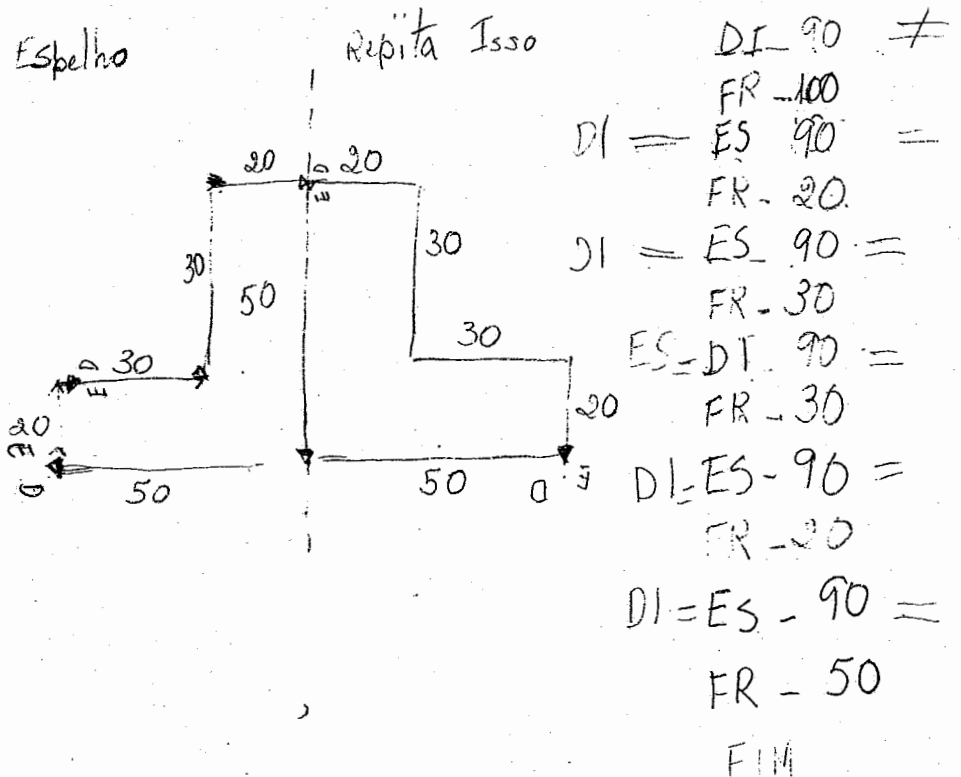 Espelho
Repita Isso
20 20
30
50
30
30
30
20
20
50
50
E D
E D
E D
D E
DI_90 ≠
FR_100
DI = ES 90 =
FR-20.
DI = ES_ 90 =
FR-30
ES=DI 90 =
FR-30
DI=ES-90 =
FR-20
DI=ES-90 =
FR-50
FIM